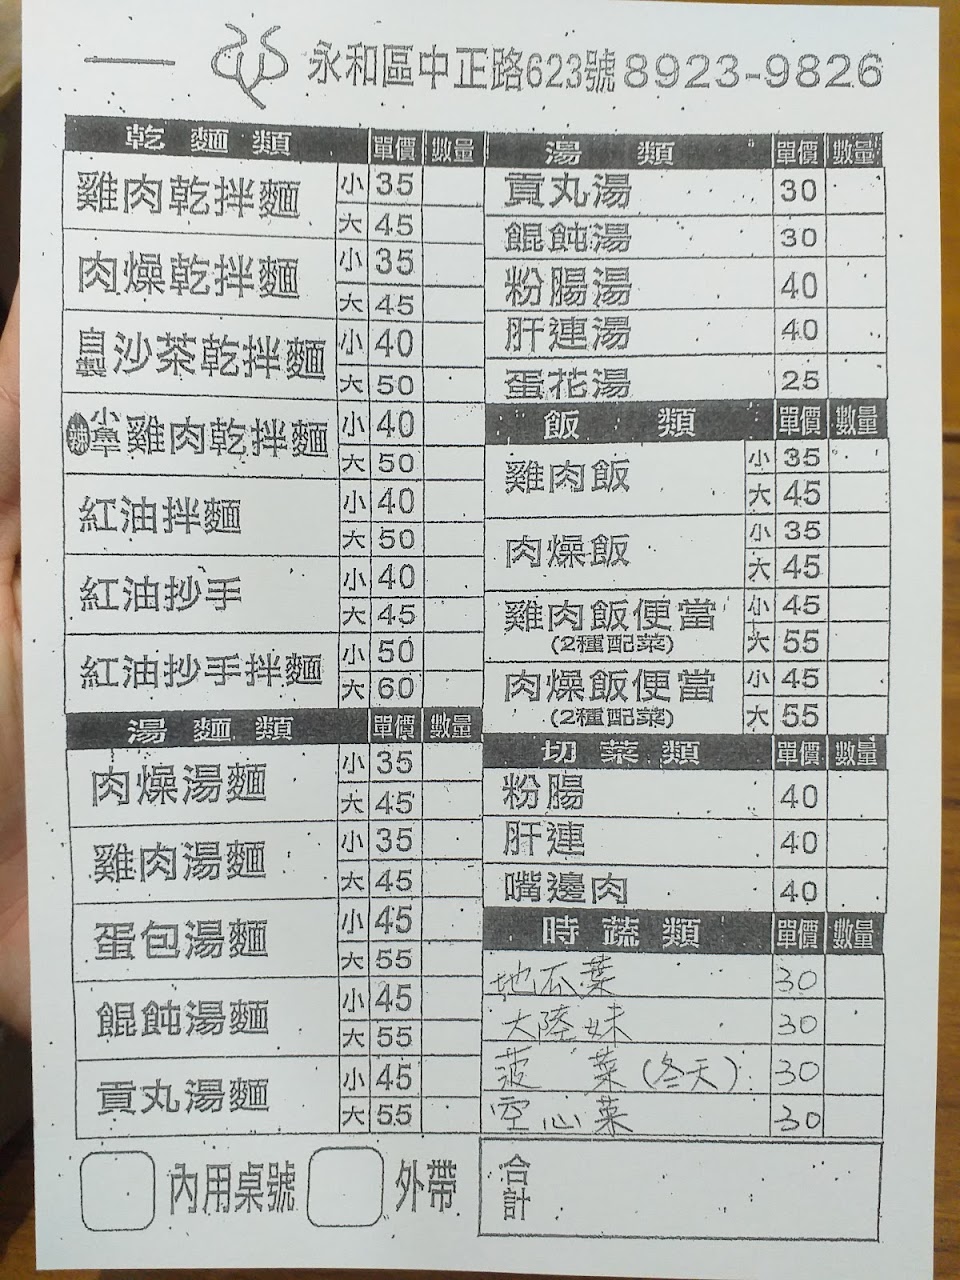 永和區中正路623號 8923-9826
乾麵類 單價 數量
雞肉乾拌麵 小 35
大 45
肉燥乾拌麵 小 35
大 45
自製沙茶乾拌麵 小 40
大 50
小辣椒雞肉乾拌麵 小 40
大 50
紅油拌麵 小 40
大 50
紅油抄手 小 40
大 45
紅油抄手拌麵 小 50
大 60
湯麵類 單價 數量
肉燥湯麵 小 35
大 45
雞肉湯麵 小 35
大 45
蛋包湯麵 小 45
大 55
餛飩湯麵 小 45
大 55
貢丸湯麵 小 45
大 55
湯類 單價 數量
貢丸湯 30
餛飩湯 30
粉腸湯 40
肝連湯 40
蛋花湯 25
飯類 單價 數量
雞肉飯 小 35
大 45
肉燥飯 小 35
大 45
雞肉飯便當 小 45
(2種配菜) 大 55
肉燥飯便當 小 45
(2種配菜) 大 55
切菜類 單價 數量
粉腸 40
肝連 40
嘴邊肉 40
時蔬類 單價 數量
地瓜葉 30
大陸妹 30
菠菜(冬天) 30
空心菜 30
內用桌號 外帶
合計